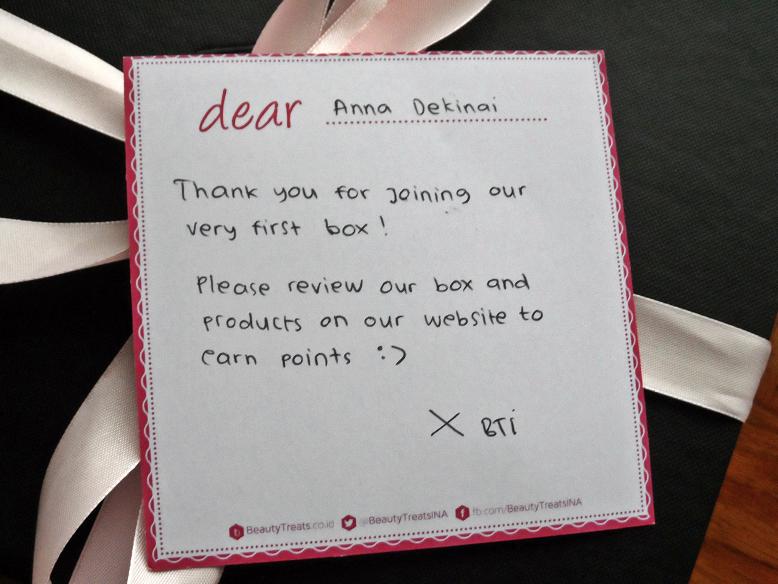 dear Anna Dekinai
Thank you for joining our
very first box!
Please review our box and
products on our website to
earn points :)
X BTI
BeautyTreats.co.id @BeautyTreatsINA fb.com/BeautyTreatsINA